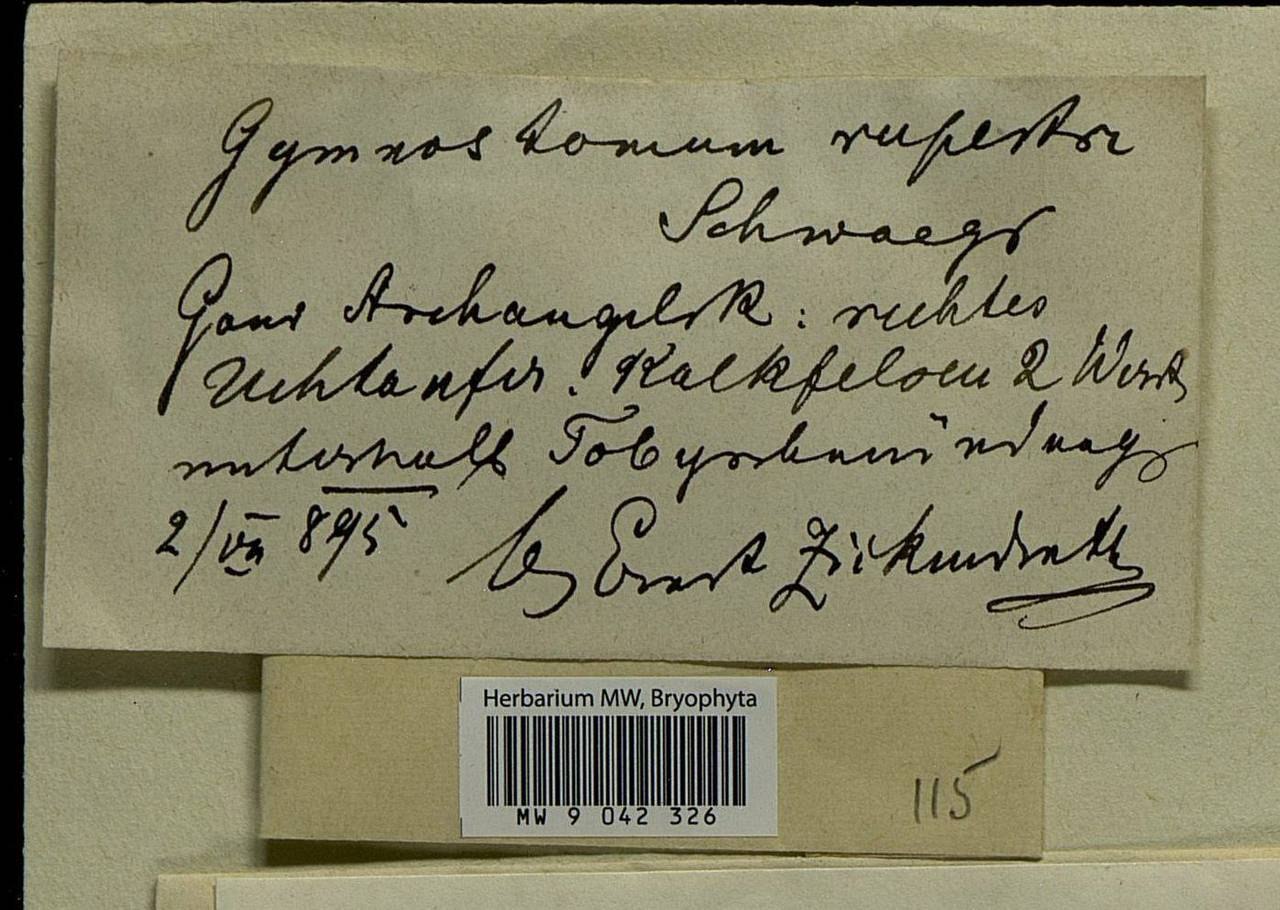 Gymnostomum rupestre
Schwaegr
Gouv Archangelsk: rechtes
Uchtaufer. Kalkfelsen 2 Werst
unterhalb Tobyschmündung
2/VII 895 Ernst Zickendrath
Herbarium MW, Bryophyta
MW 9 042 326
115